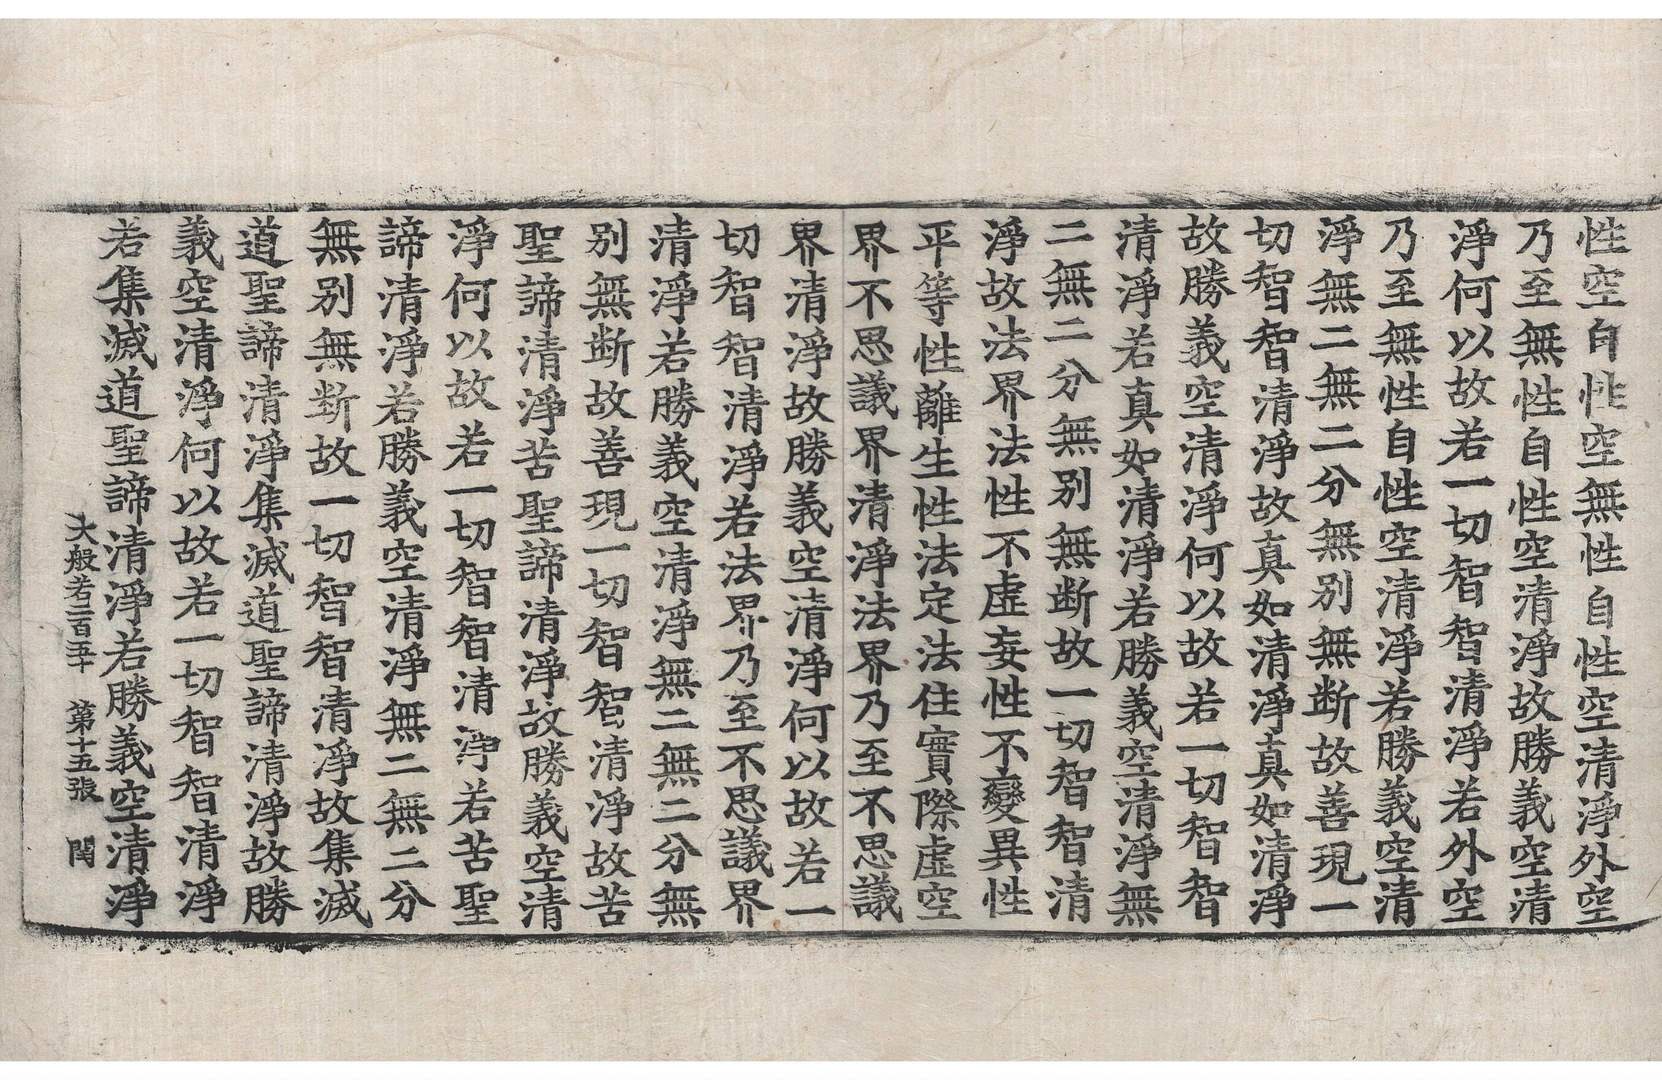 性空自性空無性自性空清淨外空
乃至無性自性空清淨故勝義空清
淨何以故若一切智智清淨若外空
乃至無性自性空清淨若勝義空清
淨無二無二分無別無断故善現一
切智智清淨故真如清淨真如清淨
故勝義空清淨何以故若一切智智
清淨若真如清淨若勝義空清淨無
二無二分無別無断故一切智智清
淨故法界法性不虛妄性不變異性
平等性離生性法定法住實際虛空
界不思議界清淨法界乃至不思議
界清淨故勝義空清淨何以故若一
切智智清淨若法界乃至不思議界
清淨若勝義空清淨無二無二分無
別無断故善現一切智智清淨故苦
聖諦清淨苦聖諦清淨故勝義空清
淨何以故若一切智智清淨若苦聖
諦清淨若勝義空清淨無二無二分
無別無断故一切智智清淨故集滅
道聖諦清淨集滅道聖諦清淨故勝
義空清淨何以故若一切智智清淨
若集滅道聖諦清淨若勝義空清淨
大般若二百五十　第十五張　閏